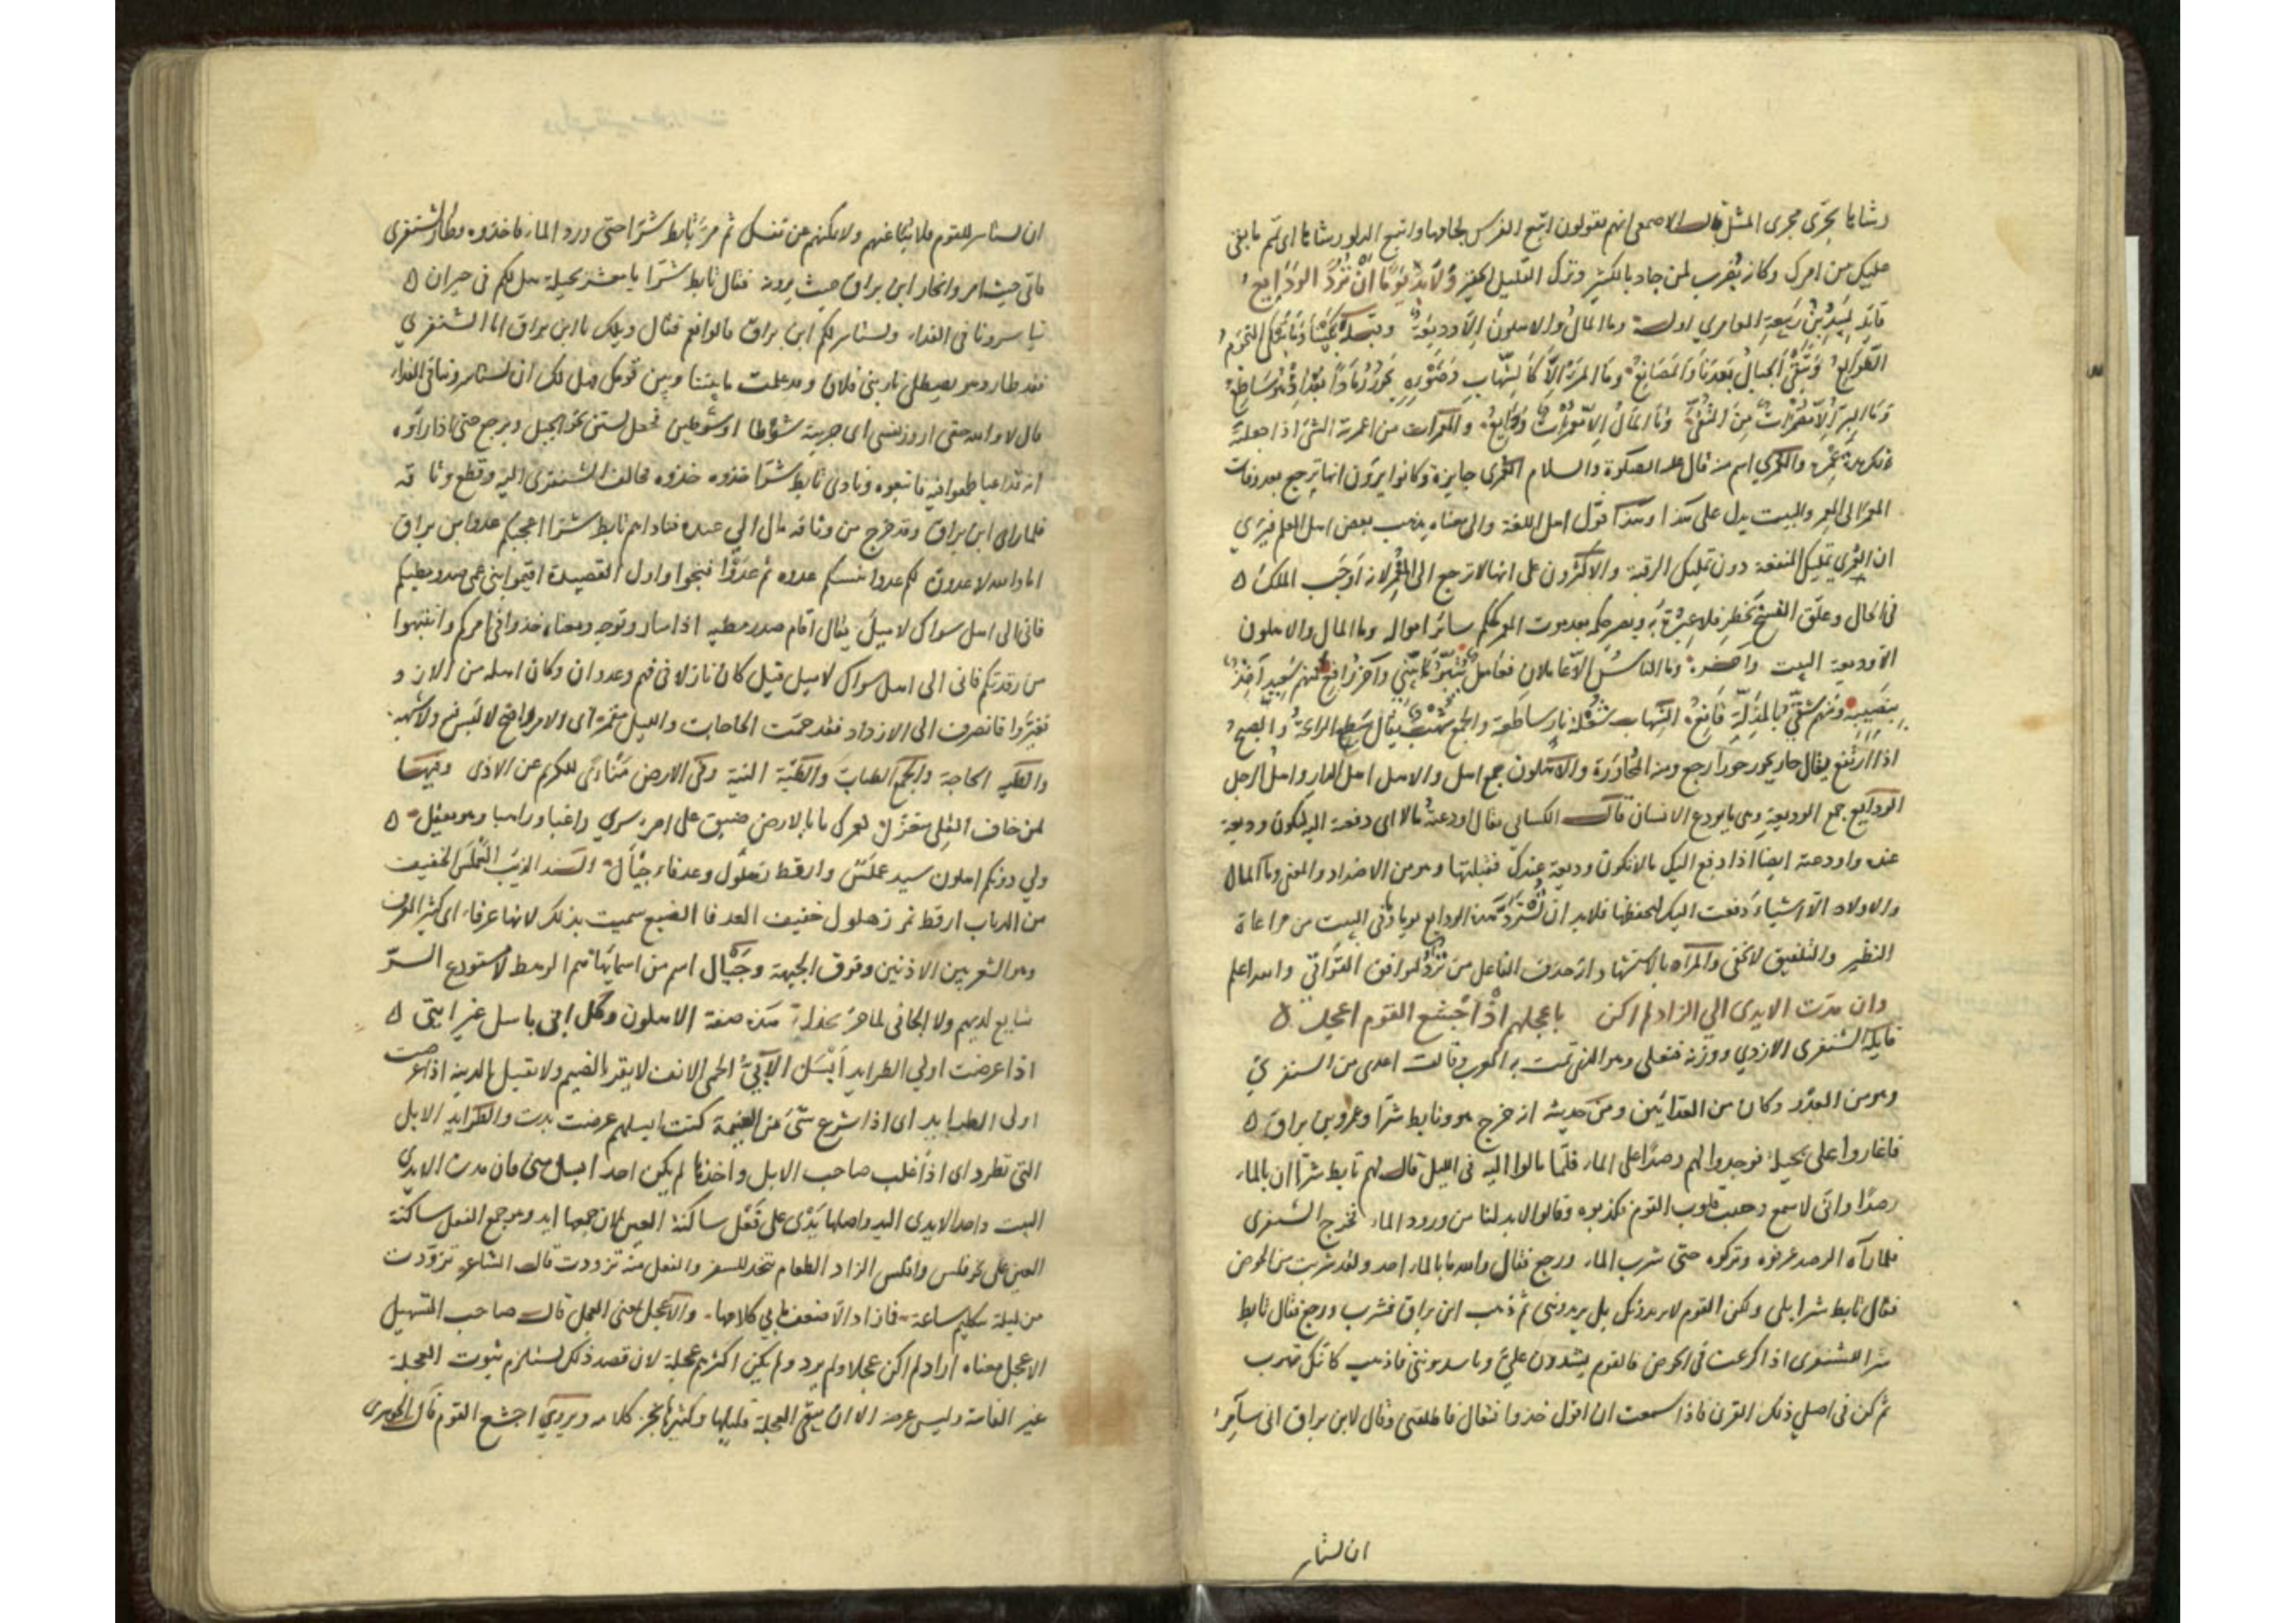 رشاءها يجرى مجرى المثل قال الاصمعى انهم يقولون اتبع الفرس لجامها واتبع الدلو رشاءها اى تمم ما بقى
عليك من امرك وكانه يضرب لمن جاد بالكثير وترك القليل الحقير ولابد يوما ان ترد الودايع
قايله لبيد بن ربيعة العامرى اوله وما المال والاهلون الا وديعة وقبله بلينا وما تبلى النجوم
الطوالع وتبقى الجبال بعدنا والمصانع وما المرء الا كالشهاب وضوءه يحور رمادا بعد اذ هو ساطع
وما البر الا مضمرات من التقى وما المال الا معمرات ودايع والمعمرات من اعمرته الشئ اذا جعلته
له عمره والعمرى اسم منه قال عليه الصلوة والسلام العمرى جايزة وكانوا يرون انها ترجع بعد وفات
المعمر الى المعمر والبيت يدل على هذا وهذا قول اهل اللغة والى معناه يذهب بعض اهل العلم فيرى
ان العمرى تمليك المنفعة دون تمليك الرقبة والاكثرون على انها لا ترجع الى المعمر لانه اوجب الملك
فى الحال وعلق الفسخ بخطر فلا عبرة به ويصر حكمه بعد موت المعمر كحكم سائر امواله وما المال والاهلون
الا وديعة البيت وآخره وما الناس الا عاملان فعامل يتبر ما يبنى وآخر رافع فمنهم سعيد آخذ
بنصيبه ومنهم شقى بالمذلة قانع الشهاب شعلة نار ساطعة والجمع شهب يقال سطع الرائحة والصبح
اذا ارتفع يقال حار يحور حورا رجع ومنه المحاورة والاهلون جمع اهل والاهل اهل الدار واهل الرجل
الودايع جمع الوديعة وهى ما يودع الانسان قال الكسائى يقال اودعته مالا اى دفعته اليه ليكون وديعة
عنده واودعته ايضا اذا دفع اليك مالا ليكون وديعة عندك فقبلتها وهو من الاضداد والمعنى وما المال
والاولاد الا اشياء دفعت اليك لتحفظها فلابد ان تسترد هذه الودايع يوما وفى البيت من مراعاة
النظير والتلفيق لا يخفى والمراد بالاستشهاد انه حذف الفاعل من ترد لتوافق القوافى والله اعلم
وان مدت الايدى الى الزاد لم اكن باعجلهم اذ اجشع القوم اعجل
قايله الشنفرى الازدى ووزنه فنعلى وهو الذى تمت به العرب وقالت اعدى من الشنفرى
وهو من العدو وكان من العدائين ومن حديثه انه خرج هو وتابط شرا وعمرو بن براق
فاغاروا على بجيلة فوجدوا لهم رصدا على الماء فلما مالوا اليه فى الليل قال لهم تابط شرا ان بالماء
رصدا وانى لاسمع وجيب قلوب القوم فكذبوه وقالوا لابد لنا من ورود الماء فخرج الشنفرى
فلما رآه الرصد عرفوه وتركوه حتى شرب الماء ورجع فقال والله ما بالماء احد ولقد شربت من الحوض
فقال تابط شرا بلى ولكن القوم لا يريدونك بل يريدوننى ثم ذهب ابن براق فشرب ورجع فقال تابط
شرا للشنفرى اذا كرعت فى الحوض فالقوم يشدون على وياسروننى فاذهب كانك تهرب
ثم كن فى اصل ذلك القرن فاذا سمعت ان اقول خذوا فتعال فاطلقنى وقال لابن براق انى سآمرك
ان تستاسر
ان تستاسر للقوم فلا تناء عنهم ولا تمكنهم من نفسك ثم مر تابط شرا حتى ورد الماء فاخذوه وطار الشنفرى
فاتى حيث امر وانحاز ابن براق حيث يرونه فقال تابط شرا يا معشر بجيلة هل لكم فى خير ان
تياسرونا فى الفداء ويستاسر لكم ابن براق قالوا نعم فقال ويلك يا ابن براق اما الشنفرى
فقد طار وهو يصطلى نار بنى فلان وقد علمت ما بيننا وبين قومك هل لك ان تستاسر وتياسرونا فى الفداء
قال لا والله حتى اروز نفسى اى اجربه شوطا او شوطين فجعل يستن نحو الجبل ويرجع حتى اذا راوه
انه قد اعيا طمعوا فيه فاتبعوه ونادى تابط شرا خذوه خذوه فخالف الشنفرى اليه وقطع وثاقه
فلما راى ابن براق وقد خرج من وثاقه مال الى عنده فناداهم تابط شرا اعجبكم عدو ابن براق
اما والله لاعدون لكم عدوا ينسكم عدوه ثم عدوا فنجوا واول القصيدة اقيموا بنى امى صدور مطيكم
فانى الى اهل سواكم لاميل يقال اقام صدر مطيه اذا سار وتوجه ومعناه خذوا فى امركم وانتبهوا
من رقدتكم فانى الى اهل سواكم لاميل قيل كان نازلا فى فهم وعدوان وكان اصله من الازد
فغيروا فانصرف الى الازد فقد حمت الحاجات والليل مقمر اى والامر واضح لا لبس فيه ولا شبهة
والطية الحاجة والجمع الطيات والطية النية وفى الارض منأى للكريم عن الاذى وفيها
لمن خاف القلى متعزل لعمرك ما بالارض ضيق على امرء سرى راغبا او راهبا وهو يعقل
ولى دونكم اهلون سيد عملس وارقط زهلول وعرفاء جيأل السيد الذيب العملس الخفيف
من الذياب ارقط نمر زهلول خفيف العرفا الضبع سميت بذلك لانها عرفاء اى كثير العرف
وهو الشعر بين الاذنين وفوق الجبهة وجيأل اسم من اسمايها هم الرهط لا مستودع السر
شايع لديهم ولا الجانى لما جر يخذل هذه صفة الاهلون وكل ابى باسل غير اننى
اذا عرضت اولى الطرايد ابسل الابى الحمى الانف لا يقر بالضيم ولا يقبل الدنية اذا عرضت
اولى الطرايد اى اذا شرع شئ من الغنيمة كنت ابسلهم عرضت بدت والطرايد الابل
التى تطرد اى اذا غلب صاحب الابل واخذها لم يكن احد ابسل منى فان مدت الايدى
البيت واحد الايدى اليد واصلها يدى على فعل ساكنة العين لان جمعها ايد وهو جمع الفعل ساكنة
العين على نحو فلس وافلس الزاد الطعام يتخذ للسفر والفعل منه تزودت قال الشاعر تزودت
من ليلة بتكليم ساعة فما زاد الا ضعف ما بى كلامها والاعجل بمعنى العجل قال صاحب التسهيل
الاعجل معناه اراد لم اكن عجلا ولم يرد ولم يكن اكثرهم عجلة لان قصد ذلك يستلزم ثبوت العجلة
غير الفائقة وليس غرضه الا ان ينفى العجلة قليلها وكثيرها بخبر كلامه ويروى اجشع القوم قال الجوهرى